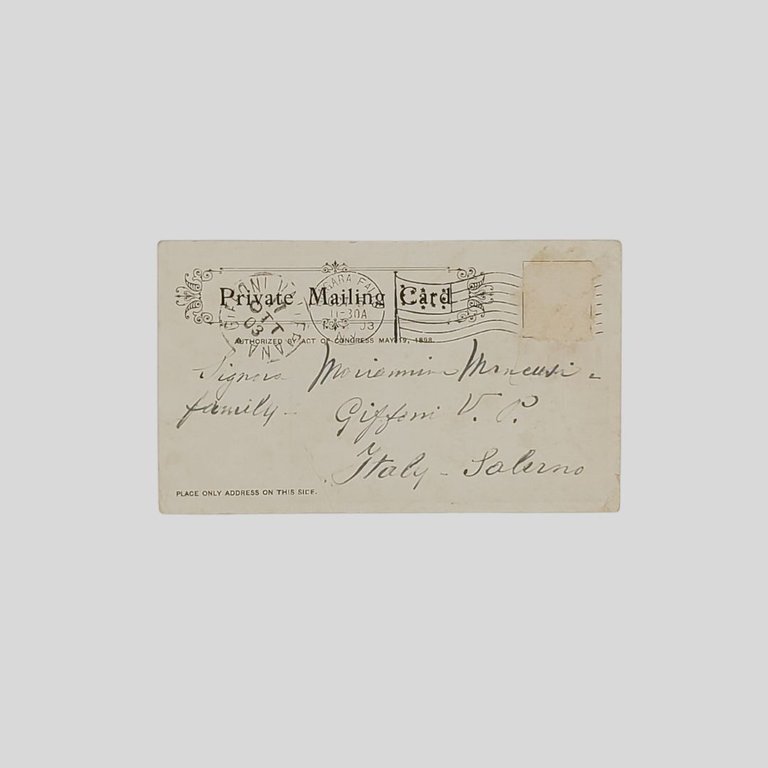 Private Mailing Card
AUTHORIZED BY ACT OF CONGRESS MAY 19, 1898.
11-30A
OTT
03
Signora Mariannina Mancusi -
family - Giffoni V. P.
Italy - Salerno
PLACE ONLY ADDRESS ON THIS SIDE.